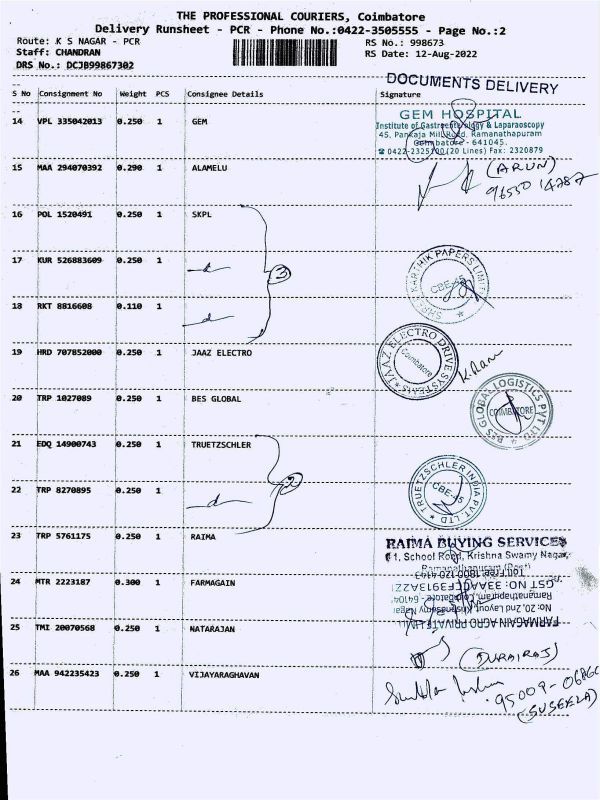 THE PROFESSIONAL COURIERS, Coimbatore
Delivery Runsheet - PCR - Phone No.:0422-3505555 - Page No.:2
Route: K S NAGAR - PCR RS No.: 998673
Staff: CHANDRAN RS Date: 12-Aug-2022
DRS No.: DCJB99867302
DOCUMENTS DELIVERY
S No Consignment No Weight PCS Consignee Details Signature
14 VPL 335042013 0.250 1 GEM
GEM HOSPITAL
Institute of Gastroenterology & Laparaoscopy
45, Pankaja Mill Road, Ramanathapuram
Coimbatore - 641045.
0422-2325100 (20 Lines) Fax: 2320879
15 MAA 294070392 0.290 1 ALAMELU
(ARUN)
96550 14787
16 POL 1520491 0.250 1 SKPL
17 KUR 526883609 0.250 1
3
SHREE KARTHIK PAPERS LIMITED
CBE-45
18 RKT 8816608 0.110 1
19 HRD 707852000 0.250 1 JAAZ ELECTRO
JAAZ ELECTRO DRIVE SYSTEMS
Coimbatore
K. Ram
20 TRP 1027089 0.250 1 BES GLOBAL
BES GLOBAL LOGISTICS PVT LTD
COIMBATORE
21 EDQ 14900743 0.250 1 TRUETZSCHLER
2
TRUETZSCHLER INDIA PVT. LTD
CBE-45
22 TRP 8270895 0.250 1
23 TRP 5761175 0.250 1 RAIMA
RAIMA BUYING SERVICES
1, School Road, Krishna Swamy Nagar,
Ramanathapuram (Post)
24 MTR 2223187 0.300 1 FARMAGAIN
FARMAGAIN AGRO PRIVATE LIMI
No: 20, 2nd Layout, Krishnasamy Nagar
Ramanathapuram, Coimbatore - 64104
GST NO: 33AAJCF3913F1ZZ
Toll Free: 1800 120 4143
25 TMI 20070568 0.250 1 NATARAJAN
(DURAIRAJ)
26 MAA 942235423 0.250 1 VIJAYARAGHAVAN
95009-0686
(SUSEELA)